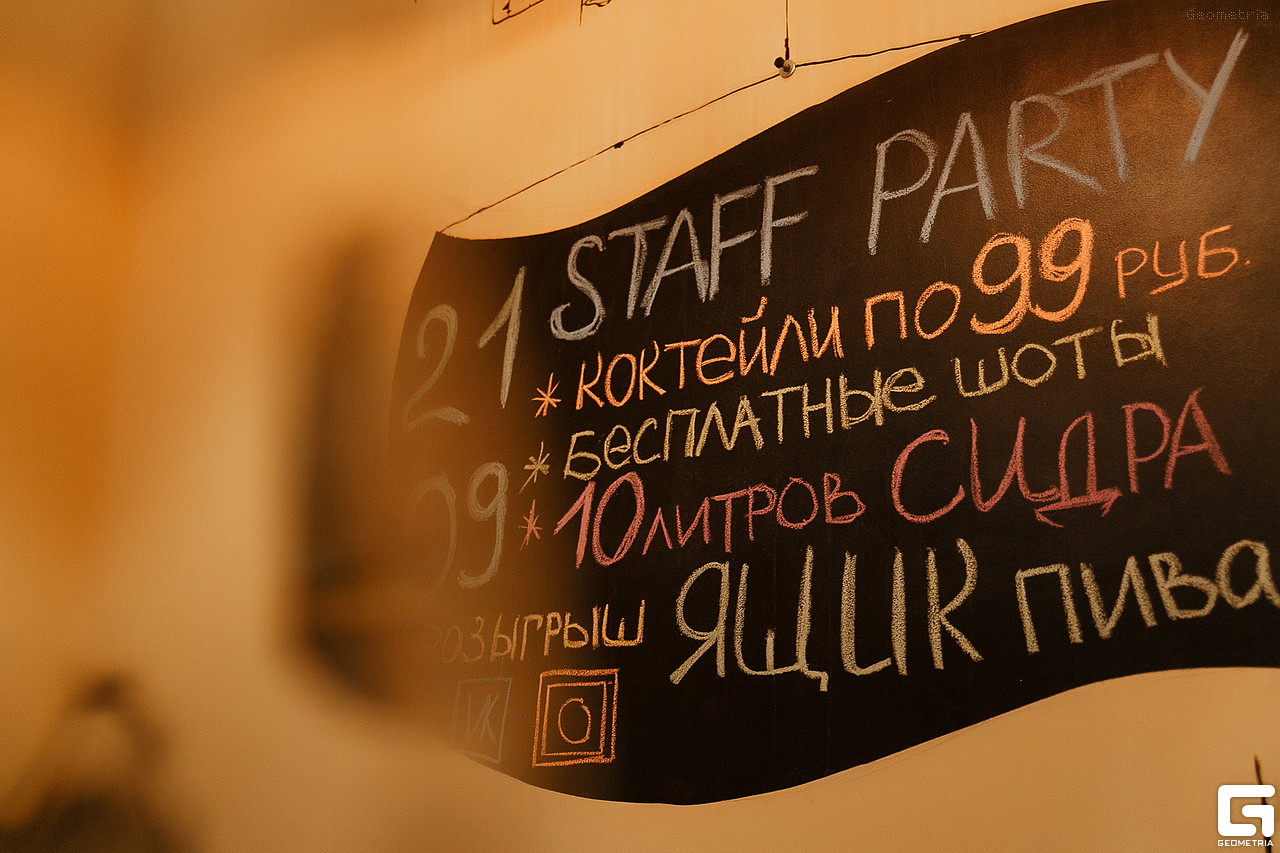 Geometria
21 STAFF PARTY
* КОКТЕЙЛИ ПО 99 РУБ.
* БЕСПЛАТНЫЕ ШОТЫ
09 * 10 ЛИТРОВ СИДРА
РОЗЫГРЫШ ЯЩИК ПИВА
VK
GEOMETRIA